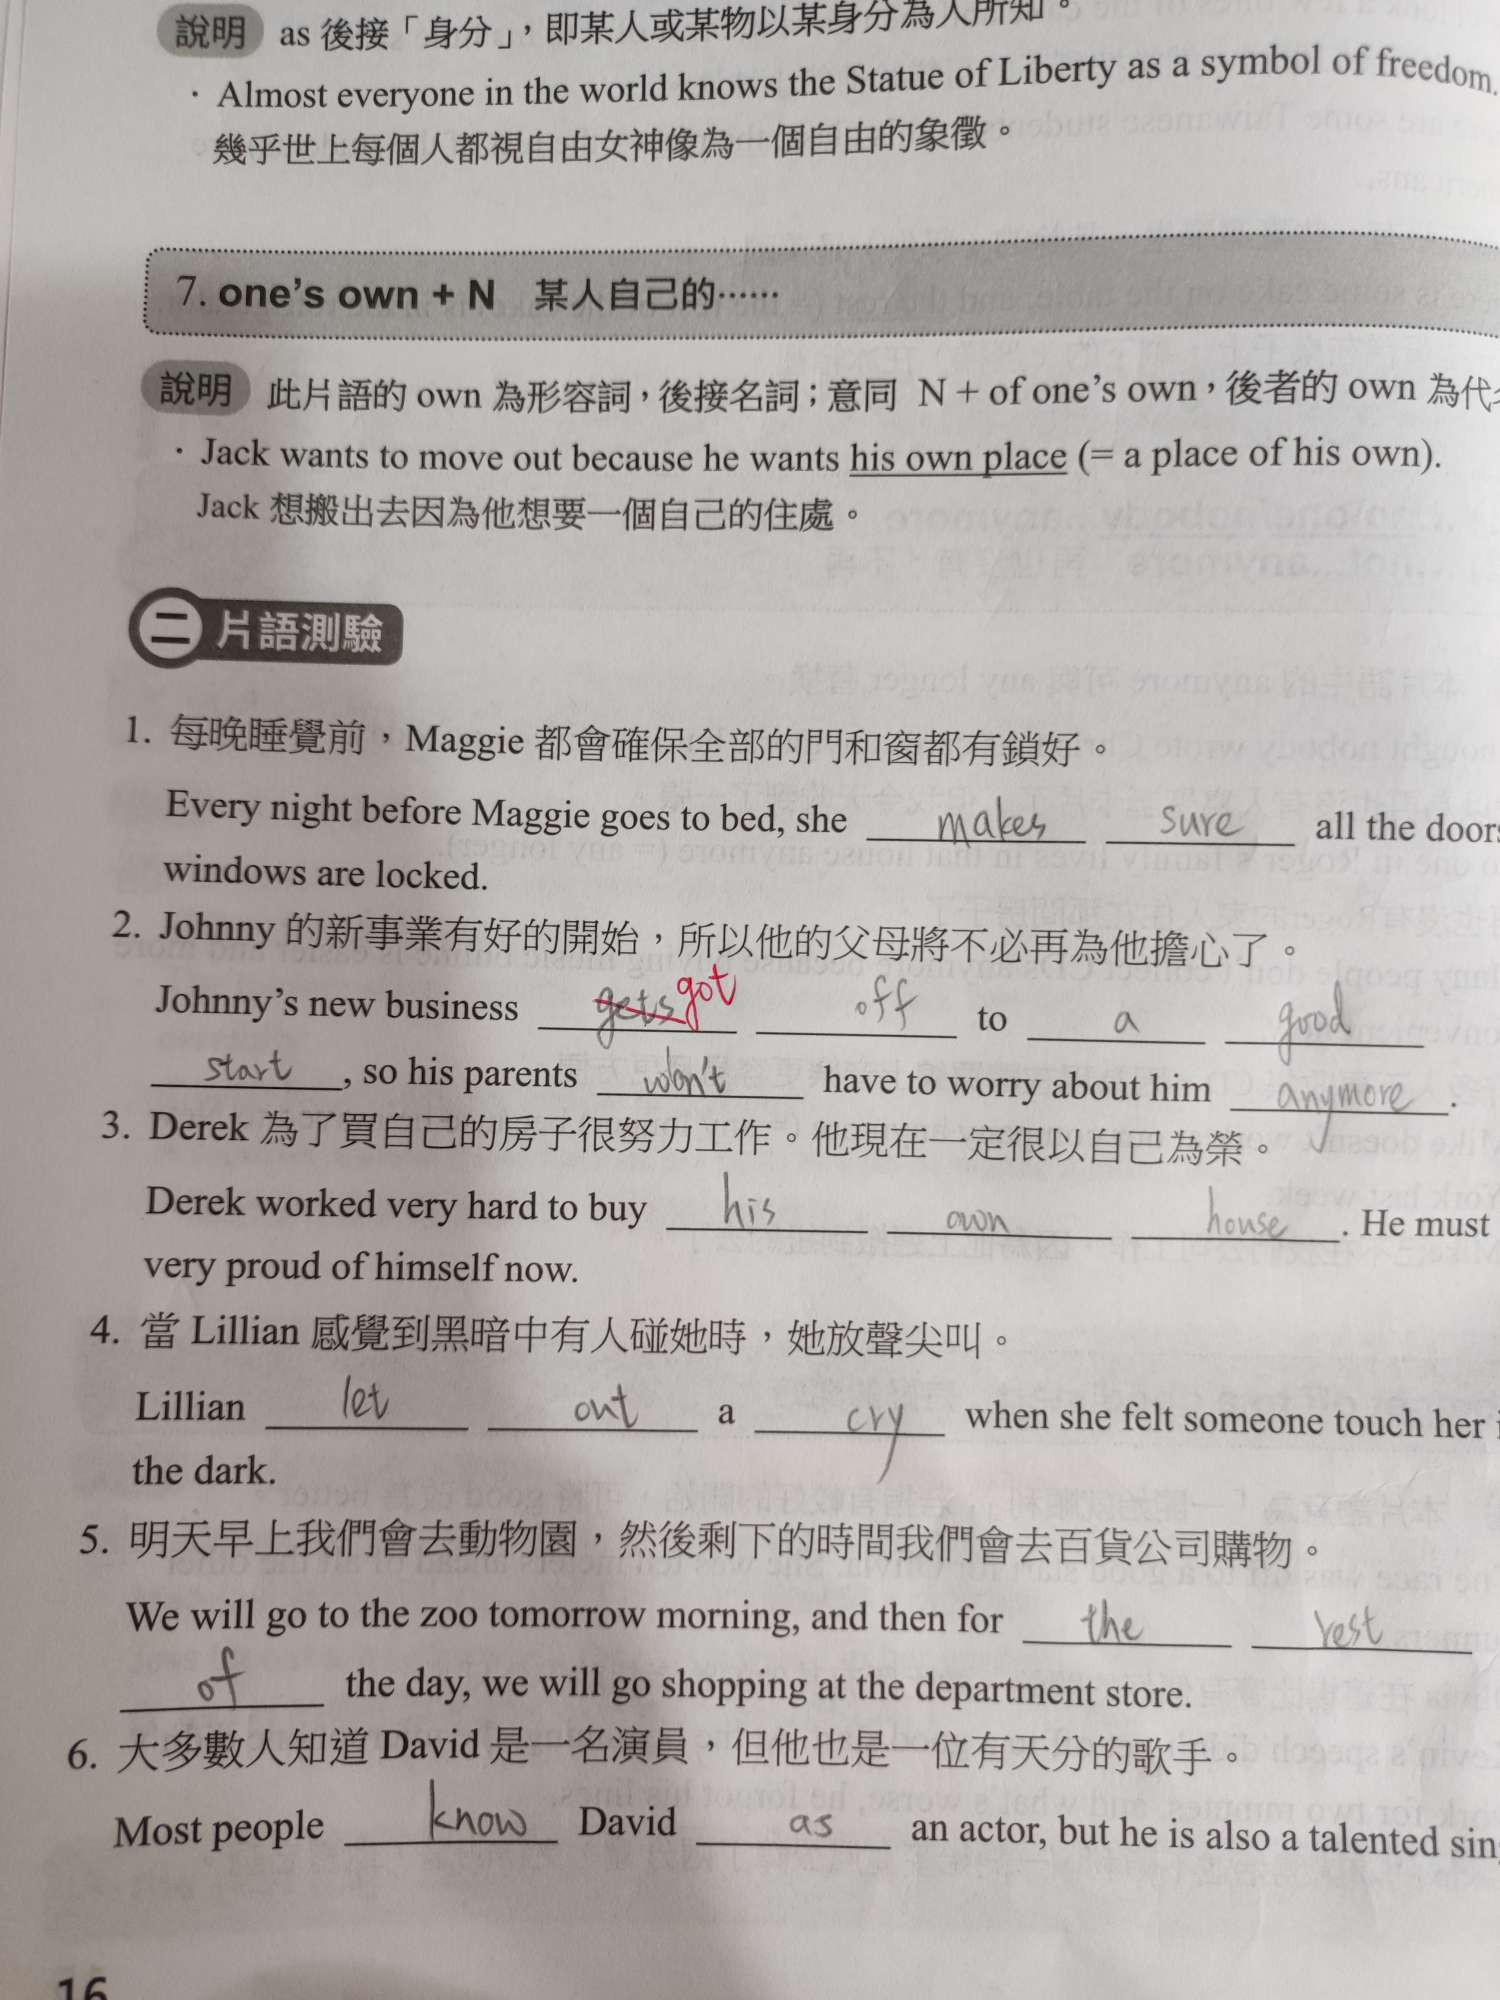 說明 as 後接「身分」，即某人或某物以某身分為人所知。
· Almost everyone in the world knows the Statue of Liberty as a symbol of freedom.
幾乎世上每個人都視自由女神像為一個自由的象徵。
7. one's own + N 某人自己的……
說明 此片語的 own 為形容詞，後接名詞；意同 N + of one's own，後者的 own 為代
· Jack wants to move out because he wants his own place (= a place of his own).
Jack 想搬出去因為他想要一個自己的住處。
二 片語測驗
1. 每晚睡覺前，Maggie 都會確保全部的門和窗都有鎖好。
Every night before Maggie goes to bed, she makes sure all the doors
windows are locked.
2. Johnny 的新事業有好的開始，所以他的父母將不必再為他擔心了。
Johnny's new business gets got off to a good
start, so his parents won't have to worry about him anymore.
3. Derek 為了買自己的房子很努力工作。他現在一定很以自己為榮。
Derek worked very hard to buy his own house. He must
very proud of himself now.
4. 當 Lillian 感覺到黑暗中有人碰她時，她放聲尖叫。
Lillian let out a cry when she felt someone touch her
the dark.
5. 明天早上我們會去動物園，然後剩下的時間我們會去百貨公司購物。
We will go to the zoo tomorrow morning, and then for the rest
of the day, we will go shopping at the department store.
6. 大多數人知道 David 是一名演員，但他也是一位有天分的歌手。
Most people know David as an actor, but he is also a talented sin
16